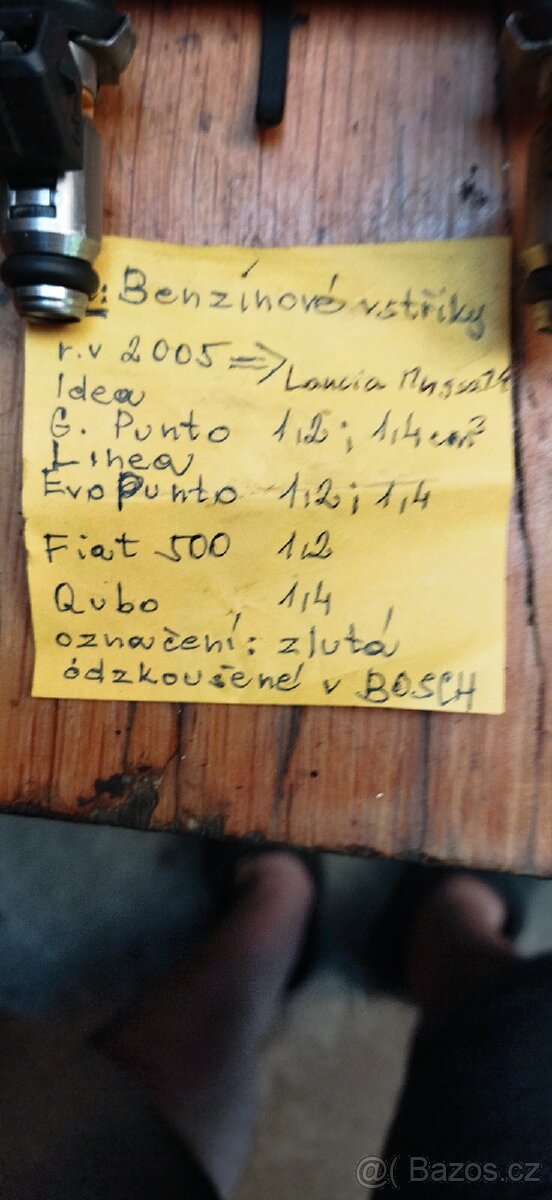 : Benzínové vstřiky
r.v 2005 => Lancia
Idea
G. Punto 1,2 ; 1,4 cm³
Linea
Evo Punto 1,2 ; 1,4
Fiat 500 1,2
Qubo 1,4
označení: zlutá
ódzkoušené v BOSCH
@( Bazos.cz